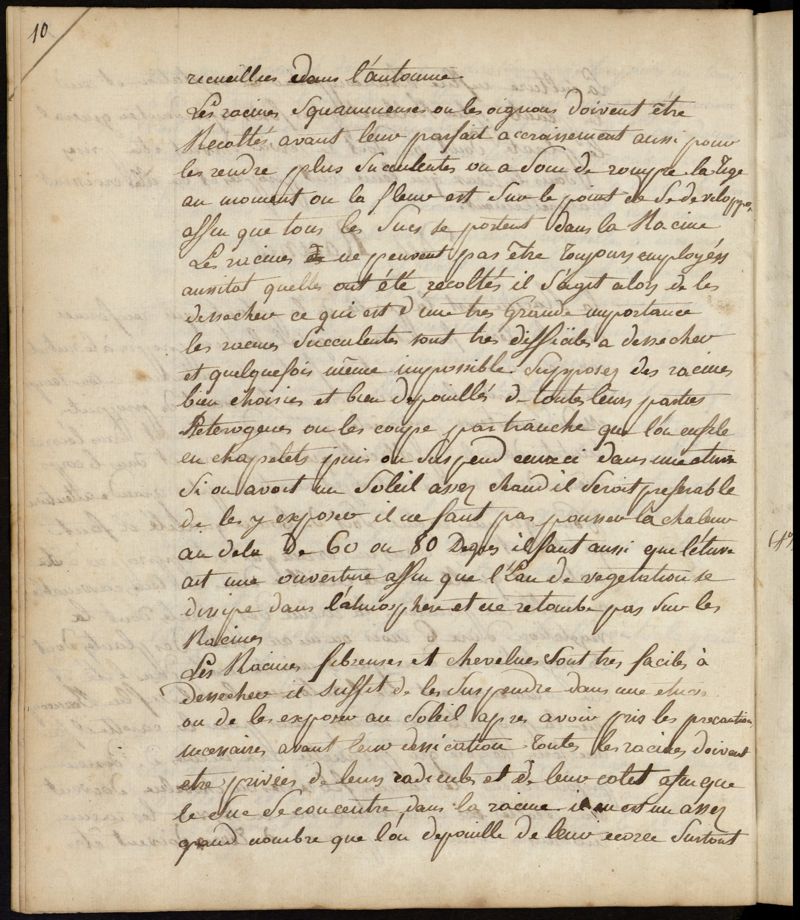 10
recueillies dans l'automne
Les racines Squammeuses ou les oignons doivent être
Recoltés avant leur parfait accroissement aussi pour
les rendre plus Succulentes on a Soin de rompre la Tige
au moment ou la fleur est Sur le point de Se developper
affin que tous les Sucs se portent dans la Racine
Les racines ne peuvent pas être Toujours employés
aussitot quelles ont été récoltés il S'agit alors de les
dessecher ce qui est d'une tres Grande importance
les racines Succulentes sont tres difficiles a dessecher
et quelquefois même impossible. Supposez des racines
bien choisies et bien depouillés de toutes leurs parties
Heterogenes on les coupe par tranche que l'on enfile
en chapelets puis on Suspend ceuxci dans une etuve
Si on avoit un Soleil assez chaud il Seroit preferable
de les y exposer il ne faut pas pousser la chaleur
au dela De 60 ou 80 Degrés il faut aussi que l'étuve
ait une ouverture affin que l'Eau de vegetation se
dissipe dans l'atmosphere et ne retombe pas Sur les
Racines
Les Racines fibreuses et chevelues Sont tres faciles à
Dessecher il Suffit de les Suspendre dans une etuve
ou de les exposer au Soleil apres avoir pris les precaution
necessaires avant leur dessication Toutes les racines doivent
etre privées de leurs radicules et de leur colet afin que
le Suc Se concentre dans la racine il en est un assez
grand nombre que l'on depouille de leur ecorce Surtout